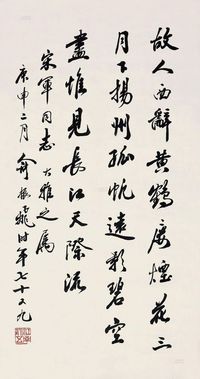 故人西辞黄鹤楼煙花三
月下揚州孤帆遠影碧空
盡惟見長江天際流
宋軍同志大雅之属
庚申二月俞振飛时年七十又九